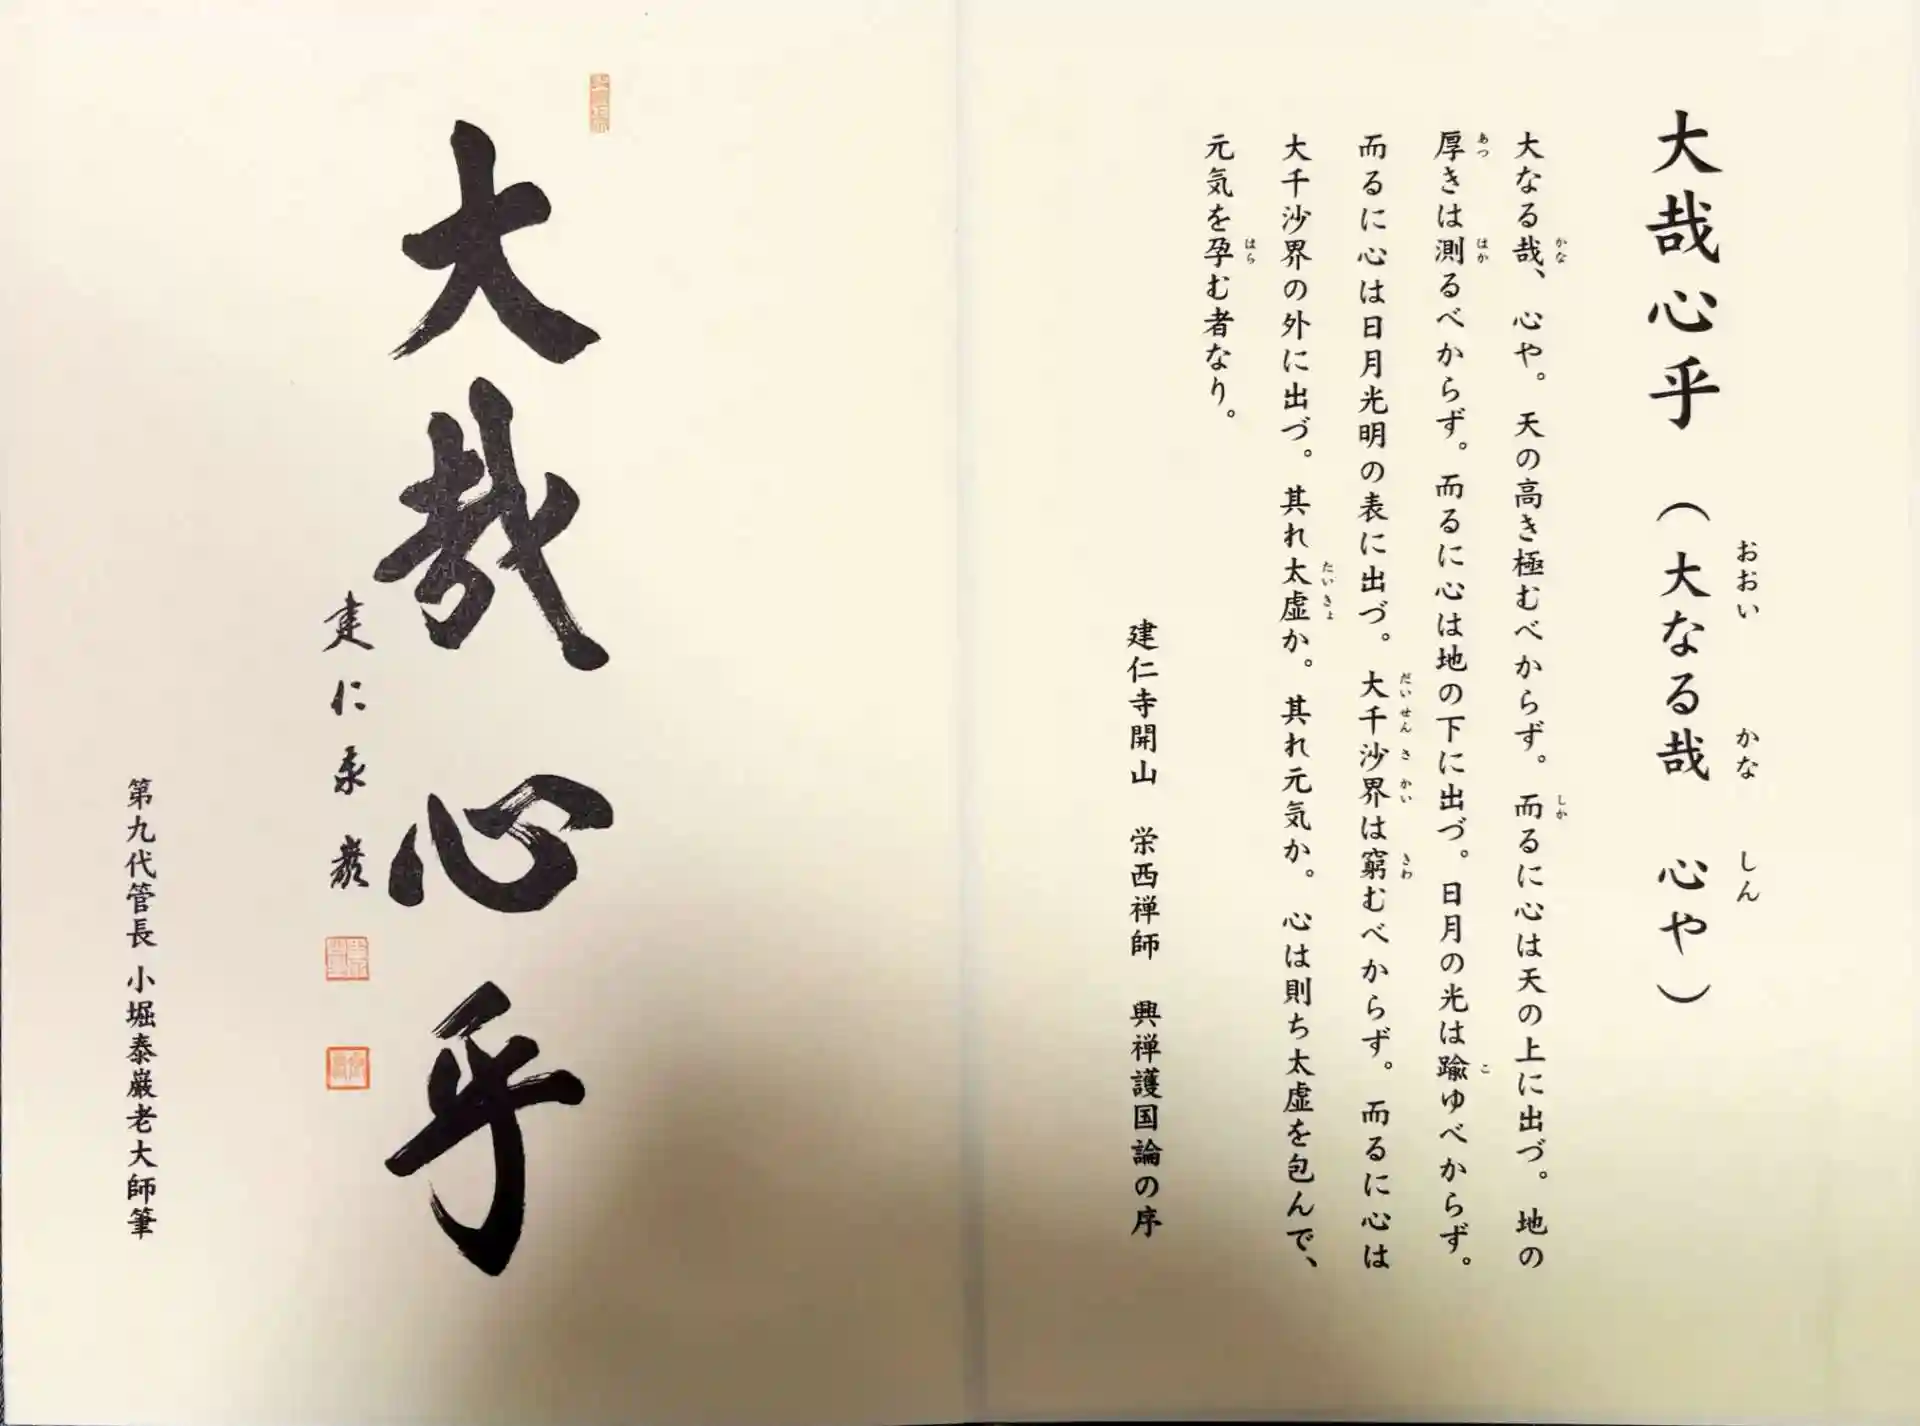 大哉心乎（大なる哉　心や）
おおい　かな　しん
大なる哉、心や。天の高き極むべからず。而るに心は天の上に出づ。地の
かな　しか
厚きは測るべからず。而るに心は地の下に出づ。日月の光は踰ゆべからず。
あつ　はか　こ
而るに心は日月光明の表に出づ。大千沙界は窮むべからず。而るに心は
だいせんさかい　きわ
大千沙界の外に出づ。其れ太虚か。其れ元気か。心は則ち太虚を包んで、
たいきょ
元気を孕む者なり。
はら
建仁寺開山　栄西禅師　興禅護国論の序
大哉心乎
建仁泰巌
第九代管長 小堀泰巌老大師筆